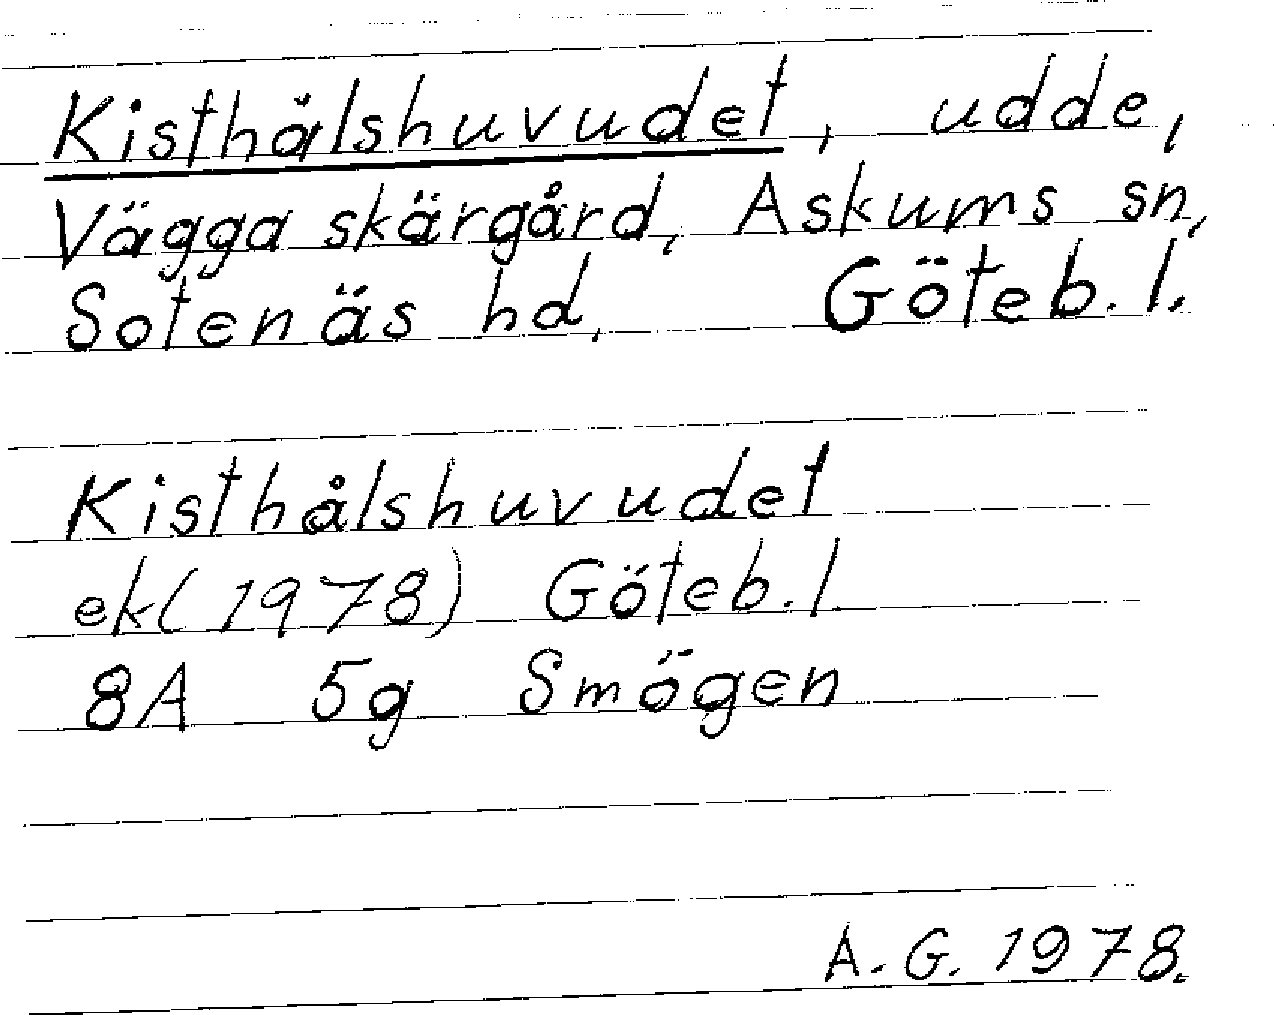 Kisthålshuvudet, udde,
Vägga skärgård, Askums sn,
Sotenäs hd, Göteb. l.
Kisthålshuvudet
ek(1978) Göteb. l
8A 5g Smögen
A. G. 1978.